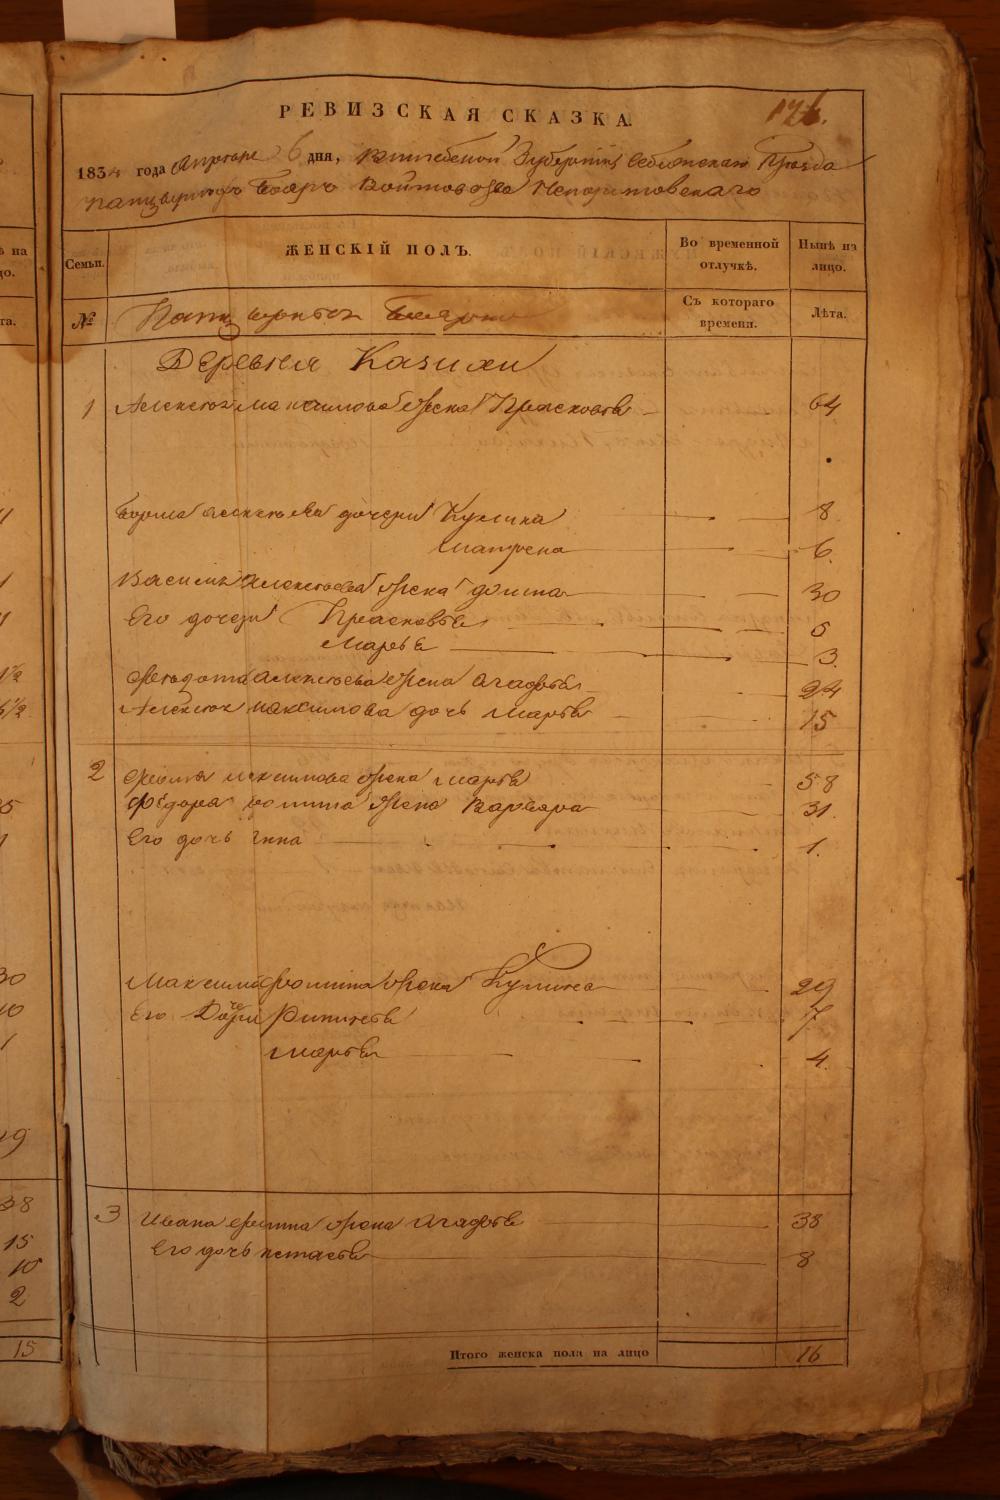 РЕВИЗСКАЯ СКАЗКА.
126.
1834 года Апреля 6 дня, Витебской Губернии Себежскаго Уезда
панцырныхъ Бояръ Войтовства Непоротовскаго
Семьи. ЖЕНСКІЙ ПОЛЪ. Во временной отлучкѣ. Нынѣ на лицо.
№ Панцырныхъ Бояръ Съ котораго времени. Лѣта.
Деревня Казихи
1 Алексея Максимова жена Прасковья 64
Алексеева дочери Кулина 8
Матрена 6.
Василья Алексеева жена Домна 30
Его дочери Прасковья 5
Марья 3.
Федота Алексеева жена Агафья 24
Алексея Максимова дочь Марья 15
2 Фомы Максимова жена Марья 58
Федора Фомина жена Варвара 31.
Его дочь Анна 1.
Максима Фомина жена Кулина 29
Его Дочери 7
Марья 4.
3 Ивана Фомина жена Агафья 38
Его дочь Настасья 8
Итого женска пола на лицо 16